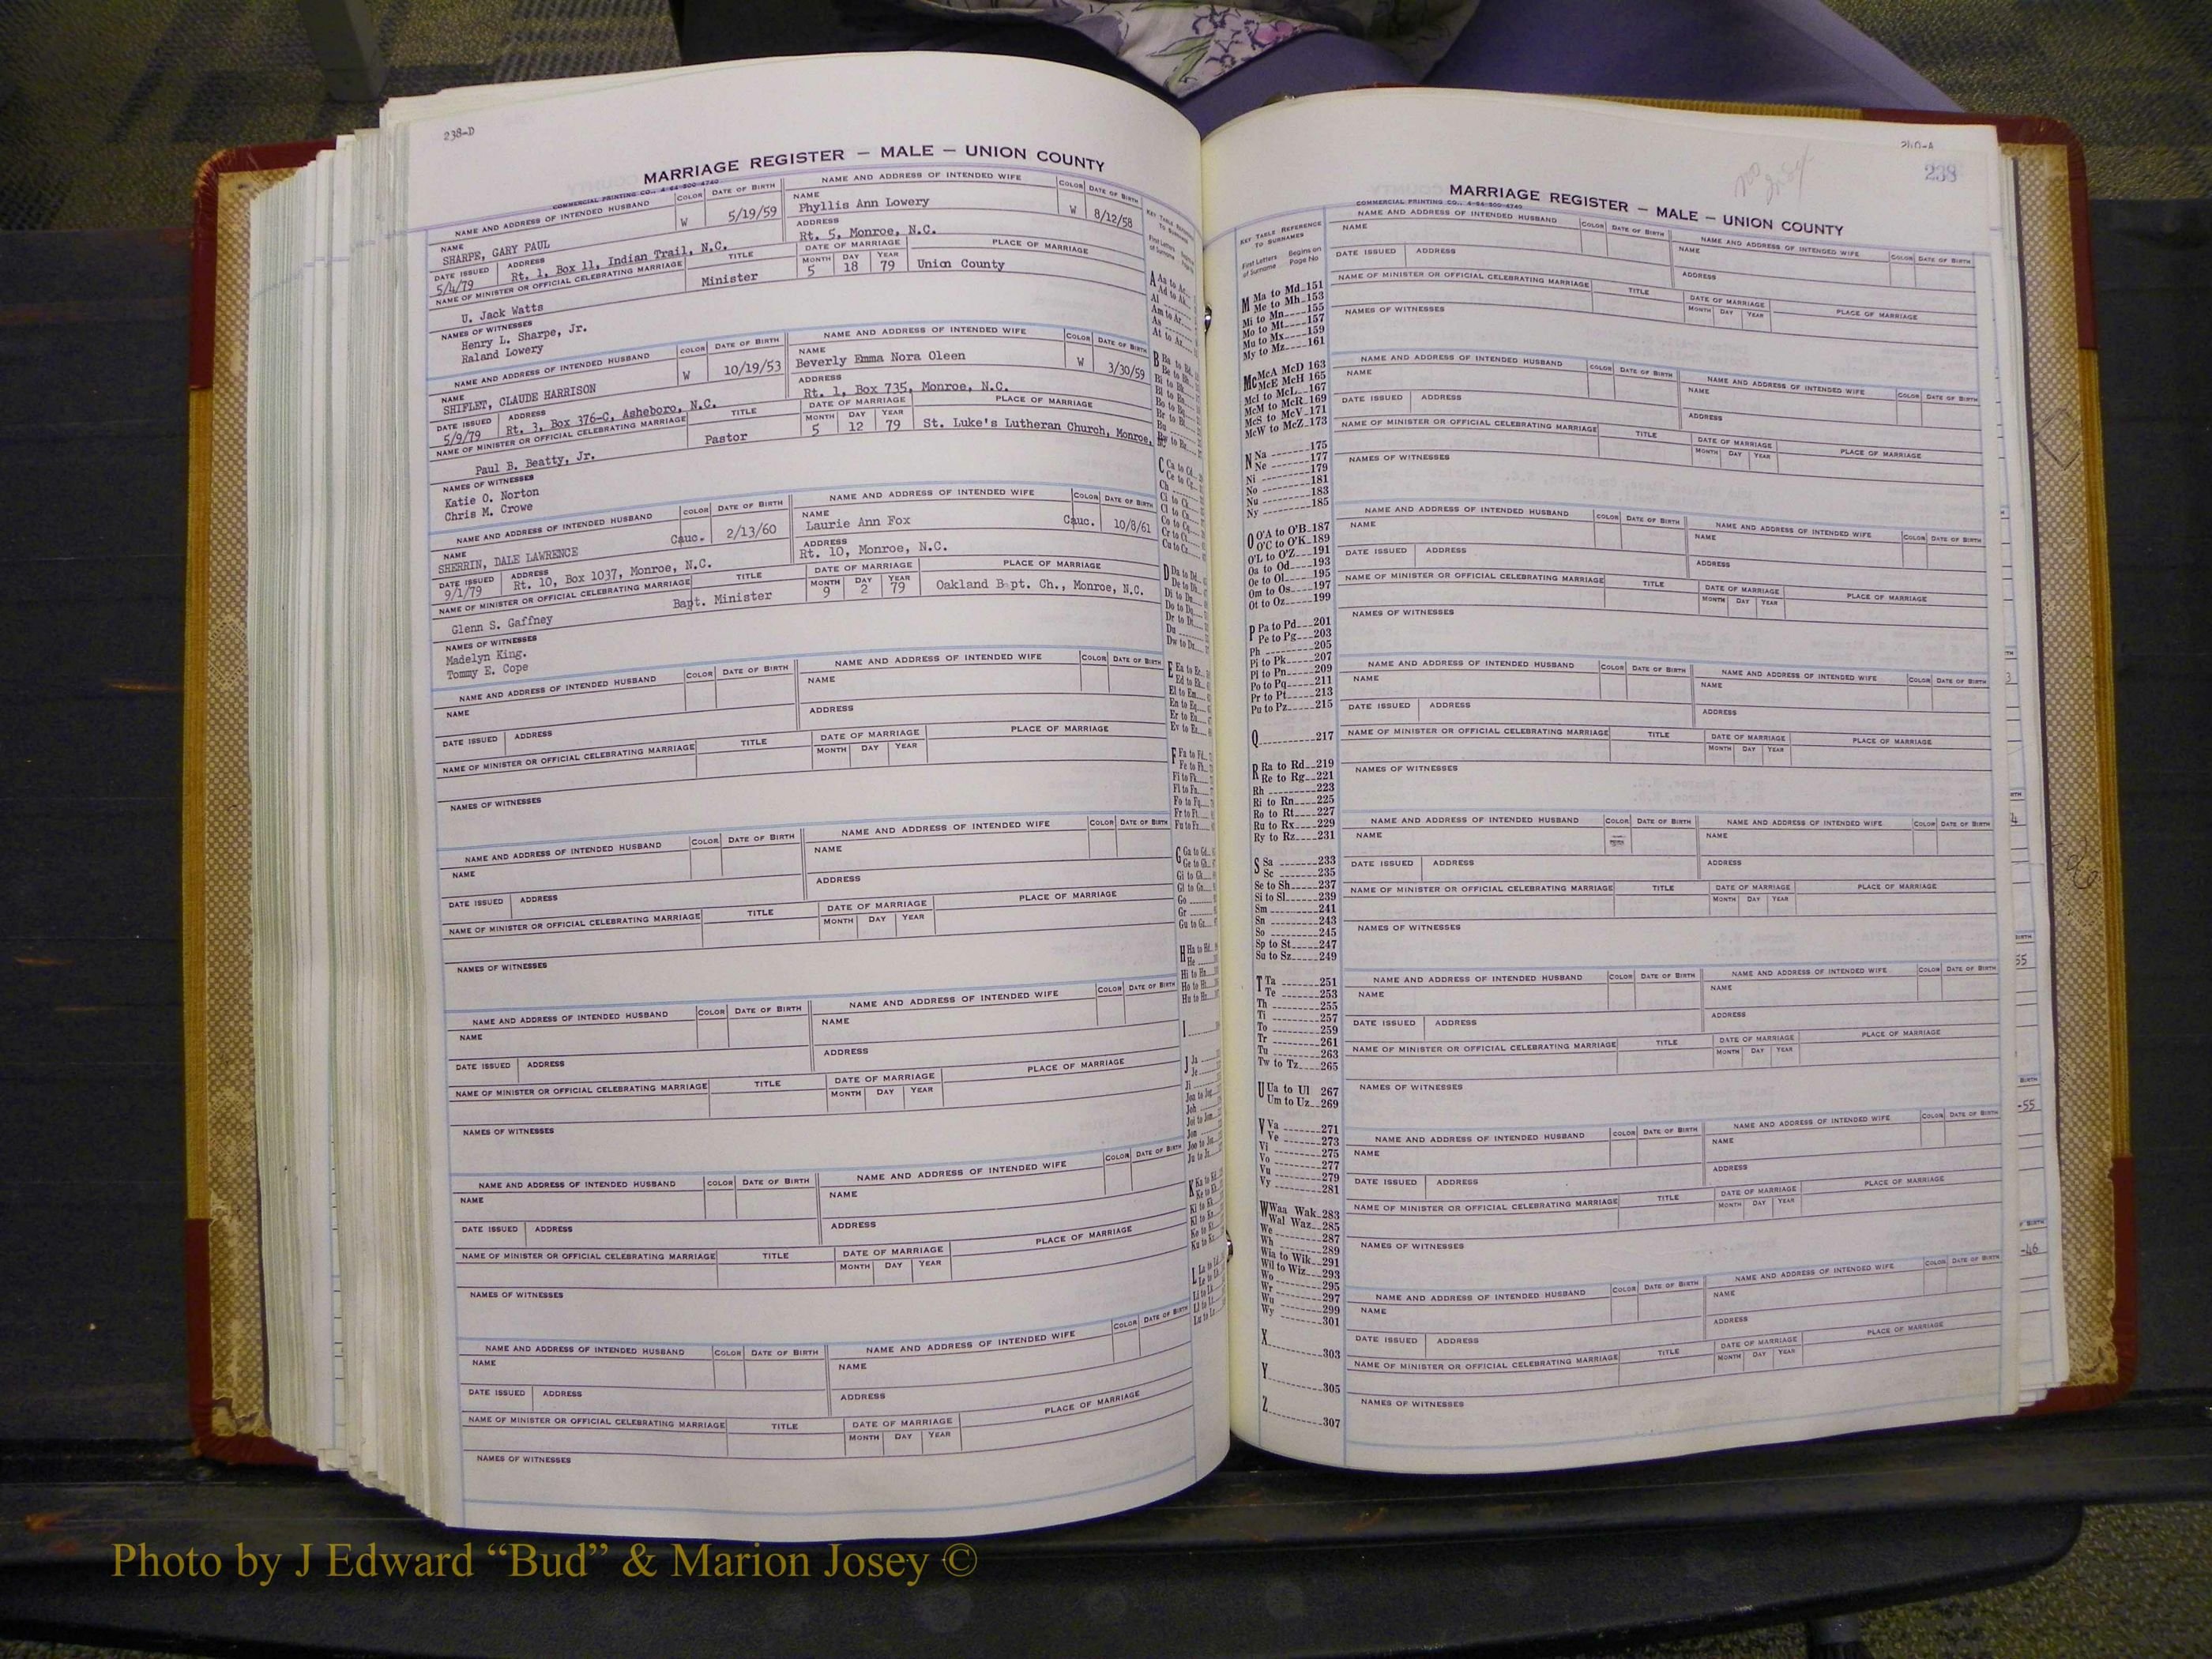 238-D
MARRIAGE REGISTER — MALE — UNION COUNTY
COMMERCIAL PRINTING CO., 4-64-500 4740
NAME AND ADDRESS OF INTENDED HUSBAND COLOR DATE OF BIRTH NAME AND ADDRESS OF INTENDED WIFE COLOR DATE OF BIRTH
NAME W 5/19/59 NAME W 8/12/58
SHARPE, GARY PAUL Phyllis Ann Lowery
DATE ISSUED ADDRESS ADDRESS
5/4/79 Rt. 1, Box 11, Indian Trail, N.C. Rt. 5, Monroe, N.C.
NAME OF MINISTER OR OFFICIAL CELEBRATING MARRIAGE TITLE DATE OF MARRIAGE PLACE OF MARRIAGE
MONTH DAY YEAR
U. Jack Watts Minister 5 18 79 Union County
NAMES OF WITNESSES
Henry L. Sharpe, Jr.
Raland Lowery
NAME AND ADDRESS OF INTENDED HUSBAND COLOR DATE OF BIRTH NAME AND ADDRESS OF INTENDED WIFE COLOR DATE OF BIRTH
NAME W 10/19/53 NAME W 3/30/59
SHIFLET, CLAUDE HARRISON Beverly Emma Nora Oleen
DATE ISSUED ADDRESS ADDRESS
5/9/79 Rt. 3, Box 376-C, Asheboro, N.C. Rt. 1, Box 735, Monroe, N.C.
NAME OF MINISTER OR OFFICIAL CELEBRATING MARRIAGE TITLE DATE OF MARRIAGE PLACE OF MARRIAGE
MONTH DAY YEAR
Paul B. Beatty, Jr. Pastor 5 12 79 St. Luke's Lutheran Church, Monroe,
NAMES OF WITNESSES
Katie O. Norton
Chris M. Crowe
NAME AND ADDRESS OF INTENDED HUSBAND COLOR DATE OF BIRTH NAME AND ADDRESS OF INTENDED WIFE COLOR DATE OF BIRTH
NAME Cauc. 2/13/60 NAME Cauc. 10/8/61
SHERRIN, DALE LAWRENCE Laurie Ann Fox
DATE ISSUED ADDRESS ADDRESS
9/1/79 Rt. 10, Box 1037, Monroe, N.C. Rt. 10, Monroe, N.C.
NAME OF MINISTER OR OFFICIAL CELEBRATING MARRIAGE TITLE DATE OF MARRIAGE PLACE OF MARRIAGE
MONTH DAY YEAR
Glenn S. Gaffney Bapt. Minister 9 2 79 Oakland B pt. Ch., Monroe, N.C.
NAMES OF WITNESSES
Madelyn King.
Tommy E. Cope
NAME AND ADDRESS OF INTENDED HUSBAND COLOR DATE OF BIRTH NAME AND ADDRESS OF INTENDED WIFE COLOR DATE OF BIRTH
NAME NAME
DATE ISSUED ADDRESS ADDRESS
NAME OF MINISTER OR OFFICIAL CELEBRATING MARRIAGE TITLE DATE OF MARRIAGE PLACE OF MARRIAGE
MONTH DAY YEAR
NAMES OF WITNESSES
NAME AND ADDRESS OF INTENDED HUSBAND COLOR DATE OF BIRTH NAME AND ADDRESS OF INTENDED WIFE COLOR DATE OF BIRTH
NAME NAME
DATE ISSUED ADDRESS ADDRESS
NAME OF MINISTER OR OFFICIAL CELEBRATING MARRIAGE TITLE DATE OF MARRIAGE PLACE OF MARRIAGE
MONTH DAY YEAR
NAMES OF WITNESSES
NAME AND ADDRESS OF INTENDED HUSBAND COLOR DATE OF BIRTH NAME AND ADDRESS OF INTENDED WIFE COLOR DATE OF BIRTH
NAME NAME
DATE ISSUED ADDRESS ADDRESS
NAME OF MINISTER OR OFFICIAL CELEBRATING MARRIAGE TITLE DATE OF MARRIAGE PLACE OF MARRIAGE
MONTH DAY YEAR
NAMES OF WITNESSES
NAME AND ADDRESS OF INTENDED HUSBAND COLOR DATE OF BIRTH NAME AND ADDRESS OF INTENDED WIFE COLOR DATE OF BIRTH
NAME NAME
DATE ISSUED ADDRESS ADDRESS
NAME OF MINISTER OR OFFICIAL CELEBRATING MARRIAGE TITLE DATE OF MARRIAGE PLACE OF MARRIAGE
MONTH DAY YEAR
NAMES OF WITNESSES
NAME AND ADDRESS OF INTENDED HUSBAND COLOR DATE OF BIRTH NAME AND ADDRESS OF INTENDED WIFE COLOR DATE OF BIRTH
NAME NAME
DATE ISSUED ADDRESS ADDRESS
NAME OF MINISTER OR OFFICIAL CELEBRATING MARRIAGE TITLE DATE OF MARRIAGE PLACE OF MARRIAGE
MONTH DAY YEAR
NAMES OF WITNESSES
240-A
238
MARRIAGE REGISTER — MALE — UNION COUNTY
COMMERCIAL PRINTING CO., 4-64-500 4740
KEY TABLE REFERENCE
TO SURNAMES
First Letters of Surname Begins on Page No
M Ma to Md 151
Me to Mh 153
Mi to Mn 155
Mo to Mt 157
Mu to Mx 159
My to Mz 161
Mc McA McD 163
McE McH 165
McI to McL 167
McM to McR 169
McS to McV 171
McW to McZ 173
N Na 175
Ne 177
Ni 179
No 181
Nu 183
Ny 185
O O'A to O'B 187
O'C to O'K 189
O'L to O'Z 191
Oa to Od 193
Oe to Ol 195
Om to Os 197
Ot to Oz 199
P Pa to Pd 201
Pe to Pg 203
Ph 205
Pi to Pk 207
Pl to Pn 209
Po to Pq 211
Pr to Pt 213
Pu to Pz 215
Q 217
R Ra to Rd 219
Re to Rg 221
Rh 223
Ri to Rn 225
Ro to Rt 227
Ru to Rx 229
Ry to Rz 231
S Sa 233
Sc 235
Se to Sh 237
Si to Sl 239
Sm 241
Sn 243
So 245
Sp to St 247
Su to Sz 249
T Ta 251
Te 253
Th 255
Ti 257
To 259
Tr 261
Tu 263
Tw to Tz 265
U Ua to Ul 267
Um to Uz 269
V Va 271
Ve 273
Vi 275
Vo 277
Vu 279
Vy 281
W Waa Wak 283
Wal Waz 285
We 287
Wh 289
Wia to Wik 291
Wil to Wiz 293
Wo 295
Wr 297
Wu 299
Wy 301
X 303
Y 305
Z 307
NAME AND ADDRESS OF INTENDED HUSBAND COLOR DATE OF BIRTH NAME AND ADDRESS OF INTENDED WIFE COLOR DATE OF BIRTH
NAME NAME
DATE ISSUED ADDRESS ADDRESS
NAME OF MINISTER OR OFFICIAL CELEBRATING MARRIAGE TITLE DATE OF MARRIAGE PLACE OF MARRIAGE
MONTH DAY YEAR
NAMES OF WITNESSES
NAME AND ADDRESS OF INTENDED HUSBAND COLOR DATE OF BIRTH NAME AND ADDRESS OF INTENDED WIFE COLOR DATE OF BIRTH
NAME NAME
DATE ISSUED ADDRESS ADDRESS
NAME OF MINISTER OR OFFICIAL CELEBRATING MARRIAGE TITLE DATE OF MARRIAGE PLACE OF MARRIAGE
MONTH DAY YEAR
NAMES OF WITNESSES
NAME AND ADDRESS OF INTENDED HUSBAND COLOR DATE OF BIRTH NAME AND ADDRESS OF INTENDED WIFE COLOR DATE OF BIRTH
NAME NAME
DATE ISSUED ADDRESS ADDRESS
NAME OF MINISTER OR OFFICIAL CELEBRATING MARRIAGE TITLE DATE OF MARRIAGE PLACE OF MARRIAGE
MONTH DAY YEAR
NAMES OF WITNESSES
NAME AND ADDRESS OF INTENDED HUSBAND COLOR DATE OF BIRTH NAME AND ADDRESS OF INTENDED WIFE COLOR DATE OF BIRTH
NAME NAME
DATE ISSUED ADDRESS ADDRESS
NAME OF MINISTER OR OFFICIAL CELEBRATING MARRIAGE TITLE DATE OF MARRIAGE PLACE OF MARRIAGE
MONTH DAY YEAR
NAMES OF WITNESSES
NAME AND ADDRESS OF INTENDED HUSBAND COLOR DATE OF BIRTH NAME AND ADDRESS OF INTENDED WIFE COLOR DATE OF BIRTH
NAME NAME
DATE ISSUED ADDRESS ADDRESS
NAME OF MINISTER OR OFFICIAL CELEBRATING MARRIAGE TITLE DATE OF MARRIAGE PLACE OF MARRIAGE
MONTH DAY YEAR
NAMES OF WITNESSES
NAME AND ADDRESS OF INTENDED HUSBAND COLOR DATE OF BIRTH NAME AND ADDRESS OF INTENDED WIFE COLOR DATE OF BIRTH
NAME NAME
DATE ISSUED ADDRESS ADDRESS
NAME OF MINISTER OR OFFICIAL CELEBRATING MARRIAGE TITLE DATE OF MARRIAGE PLACE OF MARRIAGE
MONTH DAY YEAR
NAMES OF WITNESSES
NAME AND ADDRESS OF INTENDED HUSBAND COLOR DATE OF BIRTH NAME AND ADDRESS OF INTENDED WIFE COLOR DATE OF BIRTH
NAME NAME
DATE ISSUED ADDRESS ADDRESS
NAME OF MINISTER OR OFFICIAL CELEBRATING MARRIAGE TITLE DATE OF MARRIAGE PLACE OF MARRIAGE
MONTH DAY YEAR
NAMES OF WITNESSES
NAME AND ADDRESS OF INTENDED HUSBAND COLOR DATE OF BIRTH NAME AND ADDRESS OF INTENDED WIFE COLOR DATE OF BIRTH
NAME NAME
DATE ISSUED ADDRESS ADDRESS
NAME OF MINISTER OR OFFICIAL CELEBRATING MARRIAGE TITLE DATE OF MARRIAGE PLACE OF MARRIAGE
MONTH DAY YEAR
NAMES OF WITNESSES
55
-55
-46
Photo by J Edward “Bud” & Marion Josey ©